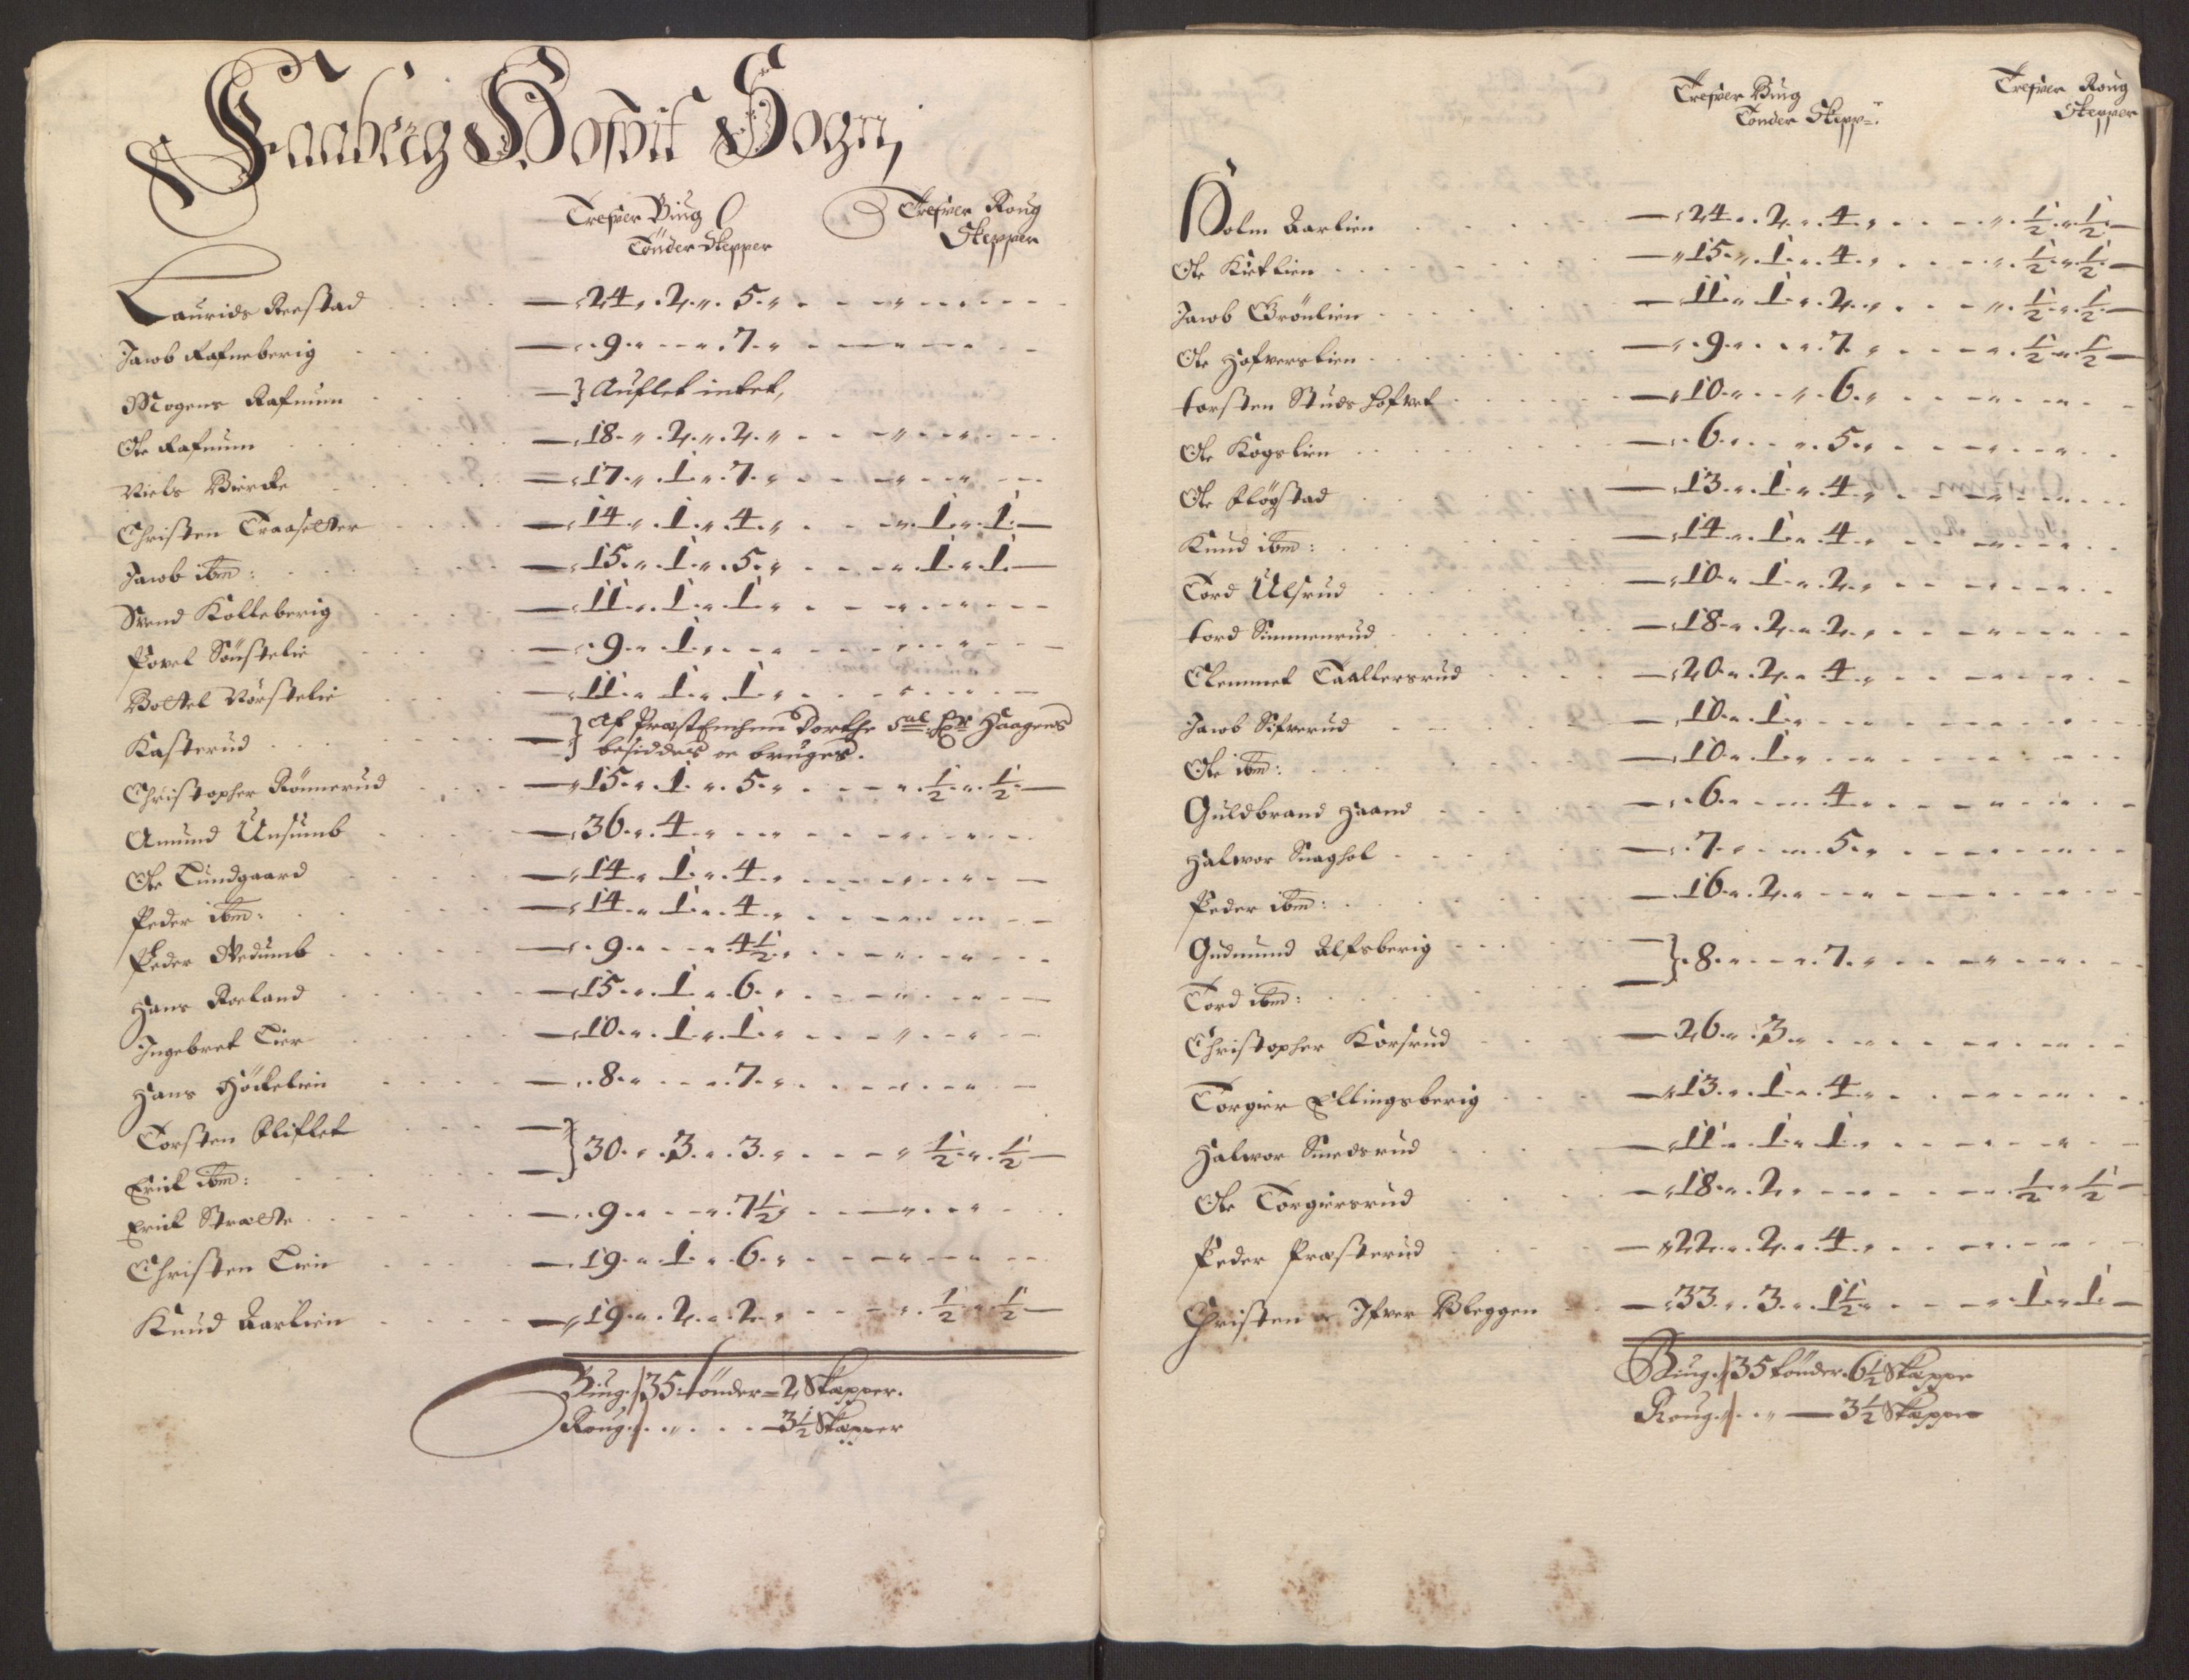 Faaberig Hofvit Sogn,
Trefver Biug Trefver Roug
Tönder Skepper Skepper
Laurids Reestad 24 . 2 . 5
Jacob Rafneberig 9 . 7
Mogens Rafnum } Auflet intet,
Ole Rafnum 18 . 2 . 2
Niels Biercke 17 . 1 . 7
Christen Traasetter 14 . 1 . 4 . 1 . 1
Jacob ibm: 15 . 1 . 5 . 1 . 1
Svend Kolleberig 11 . 1 . 1
Povel Sönstelie 9 . 1
Bottel Nörstelie 11 . 1 . 1
Kasterud } Af Præst Enchen Dorthe Sal Er Haagens
besiddes oc bruges.
Christopher Rönnerud 15 . 1 . 5 . ½ . ½
Amund Unsumb 36 . 4
Ole Lundgaard 14 . 1 . 4
Peder ibm: 14 . 1 . 4
Peder Vedumb 9 . 4½
Hans Roeland 15 . 1 . 6
Ingebret Lier 10 . 1 . 1
Hans Höckelien 8 . 7
Torsten Fliflet
Erick ibm: } 30 . 3 . 3 . ½ . ½
Erick Strætte 9 . 7½
Christen Lien 19 . 1 . 6
Knud Aarlien 19 . 2 . 2 . ½ . ½
Biug / 35: tönder = 2 Skæpper.
Roug / 3½ Skæpper
Trefver Biug Trefver Roug
Tönder Skepp=. Skepper
Holm Aarlien 24 . 2 . 4 . ½ . ½
Ole Kirklien 15 . 1 . 4 . ½ . ½
Jacob Grönlien 11 . 1 . 2 . ½ . ½
Ole Hofverslien 9 . 7 . ½ . ½
torsten Studs hofvet 10 . 6
Ole Kogslien 6 . 5
Ole Flögstad 13 . 1 . 4
Knud ibm: 14 . 1 . 4
Tord Ulsrud 10 . 1 . 2
tord Simmenrud 18 . 2 . 2
Clemmet Taallersrud 20 . 2 . 4
Jacob Sifverud 10 . 1
Ole ibm: 10 . 1
Guldbrand Haave 6 . 4
Halvor Snaghol 7 . 5
Peder ibm: 16 . 2
Gudmund Alfsberig
Tord ibm: } 8 . 7
Christopher Korsrud 26 . 3
Torgier Ellingsberig 13 . 1 . 4
Halvor Smedsrud 11 . 1 . 1
Ole Torgiersrud 18 . 2 . ½ . ½
Peder Præsterud 22 . 2 . 4
Christen oc Ifver Bleggen 33 . 3 . 1½ . 1 . 1
Biug / 35 tönder . 6½ Skæppe
Roug / 3½ Skæpper